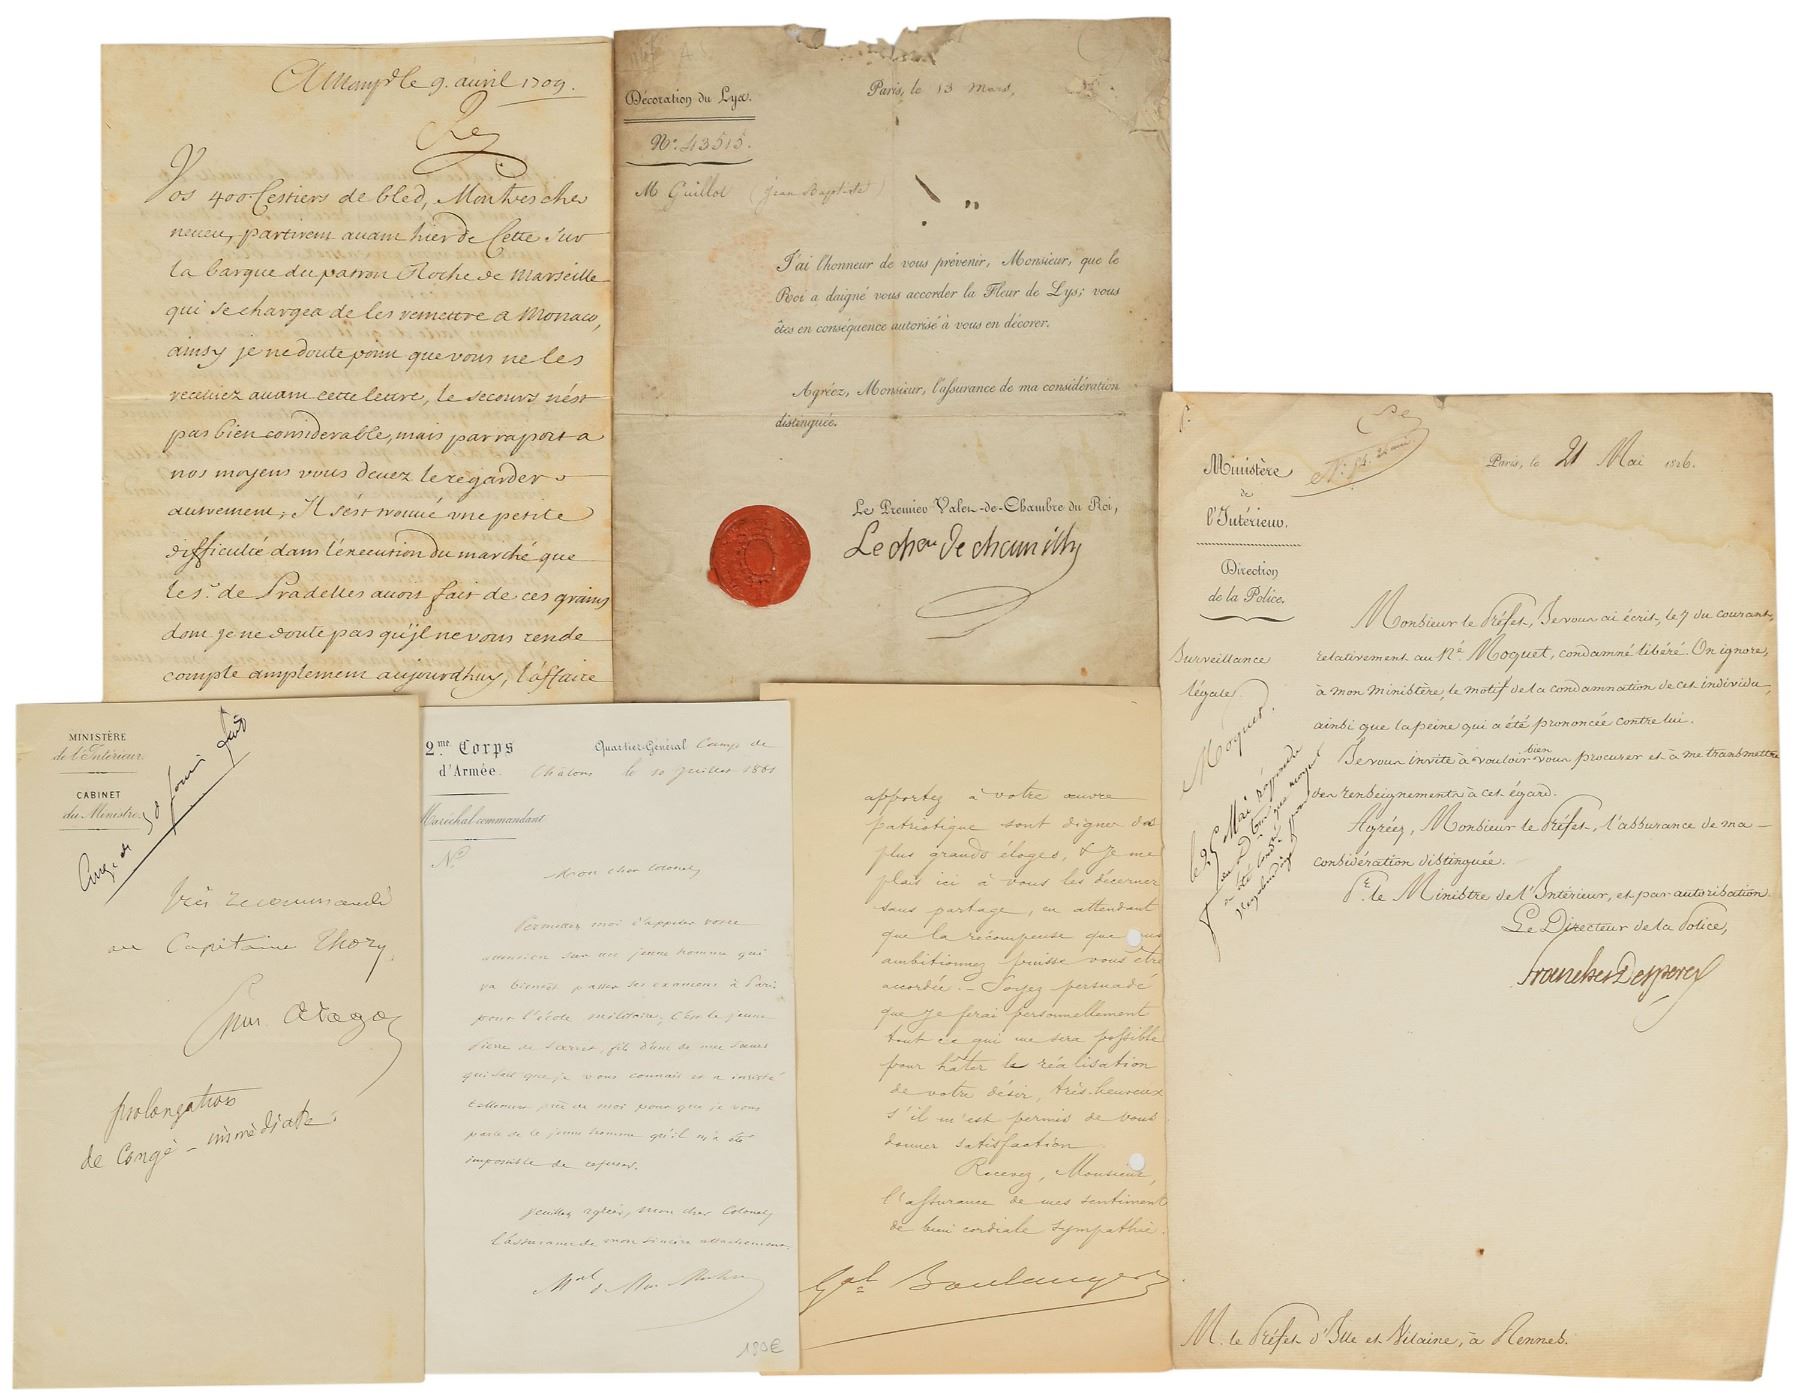 A Montp.r le 9. avril 1709.
Re
Vos 400 Cestiers de bled, Mon tres cher
neueu, partirent auant hier de Cette sur
la barque du patron Roche de Marseille
qui se chargea de les remettre a Monaco,
ainsy je ne doute point que vous ne les
receuiez auant cette lettre, le secours n'est
pas bien considerable, mais par raport a
nos moyens vous deuez le regarder
autrement, Il s'est trouué vne petite
difficulté dans l'éxecution du marché que
le s.r de Pradelles auoit fait de ces grains
dont je ne doute pas qu'jl ne vous rende
compte amplement aujourdhuy, l'affaire
Décoration du Lys.
N.o 43515.
Paris, le 13 Mars,
M Guillot (Jean Baptiste)
J'ai l'honneur de vous prévenir, Monsieur, que le
Roi a daigné vous accorder la Fleur de Lys; vous
êtes en conséquence autorisé à vous en décorer.
Agréez, Monsieur, l'assurance de ma considération
distinguée.
Le Premier Valet-de-Chambre du Roi,
Le cher de chamilly
Ministère
de
l'Intérieur.
Direction
de la Police.
Surveillance
légale.
Moquet.
le 25 Mai répondu
Paris, le 21 Mai 1826.
Monsieur le Préfet, Je vous ai écrit, le 7 du courant,
relativement au N.é Moquet, condamné libéré. On ignore,
à mon ministère, le motif de la condamnation de cet individu,
ainsi que la peine qui a été prononcée contre lui.
Je vous invite à vouloir bien vous procurer et à me transmettre
des renseignements à cet égard.
Agréez, Monsieur le Préfet, l'assurance de ma
considération distinguée.
P.r le Ministre de l'Intérieur, et par autorisation
Le Directeur de la Police,
Franchet Desperey
M. le Préfet d'Ille et Vilaine, à Rennes.
MINISTÈRE
de l'Intérieur.
CABINET
du Ministre.
Congé de 30 jours
Très recommandé
au Capitaine Thory
Emm. Arago
prolongation
de Congé – immédiate.
2me. Corps
d'Armée.
Maréchal commandant
N.o
Quartier-Général Camp de
Châlons le 10 Juillet 1861
Mon cher Colonel,
Permettez moi d'appeler votre
attention sur un jeune homme qui
va bientôt passer ses examens à Paris
pour l'école militaire, c'est le jeune
Pierre de Sarret, fils d'une de mes soeurs
qui sait que je vous connais et a insisté
tellement près de moi pour que je vous
parle de ce jeune homme qu'il m'a été
impossible de refuser.
Veuillez agréer, mon cher Colonel,
l'assurance de mon sincère attachement.
Mal de Mac Mahon
180€
apportez à votre œuvre
patriotique sont dignes des
plus grands éloges, & je me
plais ici à vous les décerner
sans partage, en attendant
que la récompense que vous
ambitionnez puisse vous être
accordée. – Soyez persuadé
que je ferai personnellement
tout ce qui me sera possible
pour hâter la réalisation
de votre désir, très heureux
s'il m'est permis de vous
donner satisfaction
Recevez, Monsieur,
l'assurance de mes sentiments
de bien cordiale sympathie.
Gal Boulanger